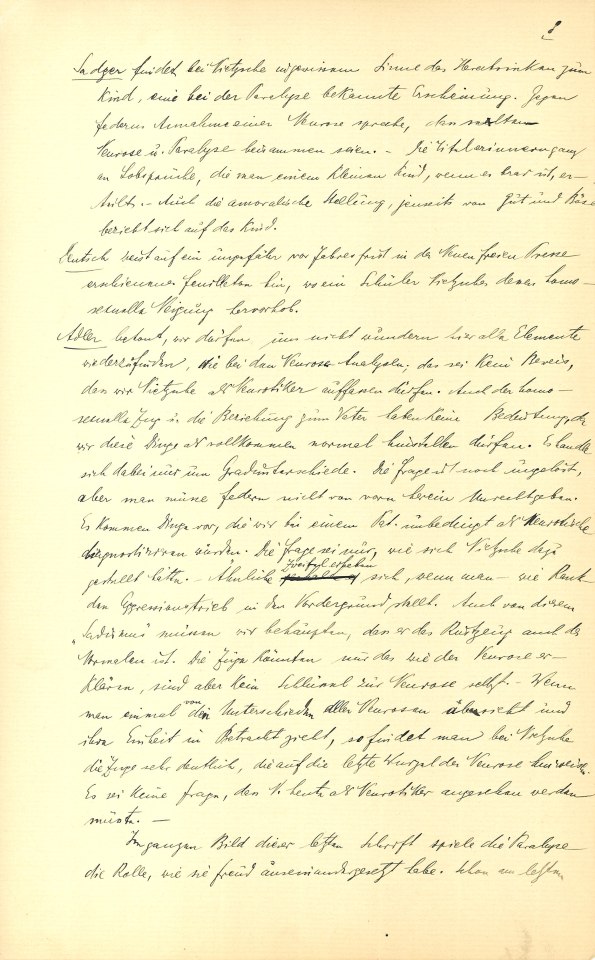 8
Sadger findet bei Nietzsche in gewissem Sinne das Herabsinken zum
Kind, eine bei der Paralyse bekannte Erscheinung. Gegen
Federns Annahme einer Neurose spreche, dass selten
Neurose u. Paralyse beisammen seien. – Die Titel erinnern ganz
an Lobsprüche, die man einem kleinen Kind, wenn es brav ist, er-
teilt. – Auch die amoralische Stellung, jenseits von Gut und Böse
bezieht sich auf das Kind.
Deutsch weist auf ein ungefähr vor Jahresfrist in der Neuen freien Presse
erschienenes Feuilleton hin, wo ein Schüler Nietzsches dessen homo-
sexuelle Neigung hervorhob.
Adler betont, wir dürfen uns nicht wundern hier alle Elemente
wiederzufinden, wie bei den Neurose-Analysen. das sei kein Beweis,
dass wir Nietzsche als Neurotiker auffassen dürfen. Auch der homo-
sexuelle Zug u. die Beziehung zum Vater haben keine Bedeutung, da
wir diese Dinge als vollkommen normal hinstellen dürfen. Es handle
sich dabei nur um Gradunterschiede. Die Frage ist noch ungelöst,
aber man müsse Federn nicht von vorn herein Unrecht geben.
Es kommen Dinge vor, die wir bei einem Pat. unbedingt als neurotische
diagnostizieren würden. Die Frage sei nur, wie sich Nietzsche dazu
gestellt hätte. – Ähnliche Zweifel erheben sich, wenn man – wie Rank –
den Aggressionstrieb in den Vordergrund stellt. Auch von diesem
„Sadismus müssen wir behaupten, dass er das Rüstzeug auch des
Normalen ist. Die Züge könnten uns das wie der Neurose er-
klären, sind aber kein Schlüssel zur Neurose selbst. – Wenn
man einmal von den Unterschieden aller Neurosen absieht und
ihre Einheit in Betracht zieht, so findet man bei Nietzsche
die Züge sehr deutlich, die auf die letzte Wurzel der Neurose hinweisen.
Es sei keine Frage, dass N. heute als Neurotiker angesehen werden
müsste. –
Im ganzen Bild dieser letzten Schrift spiele die Paralyse
die Rolle, wie sie Freud auseinandergesetzt habe. Schon im letzten